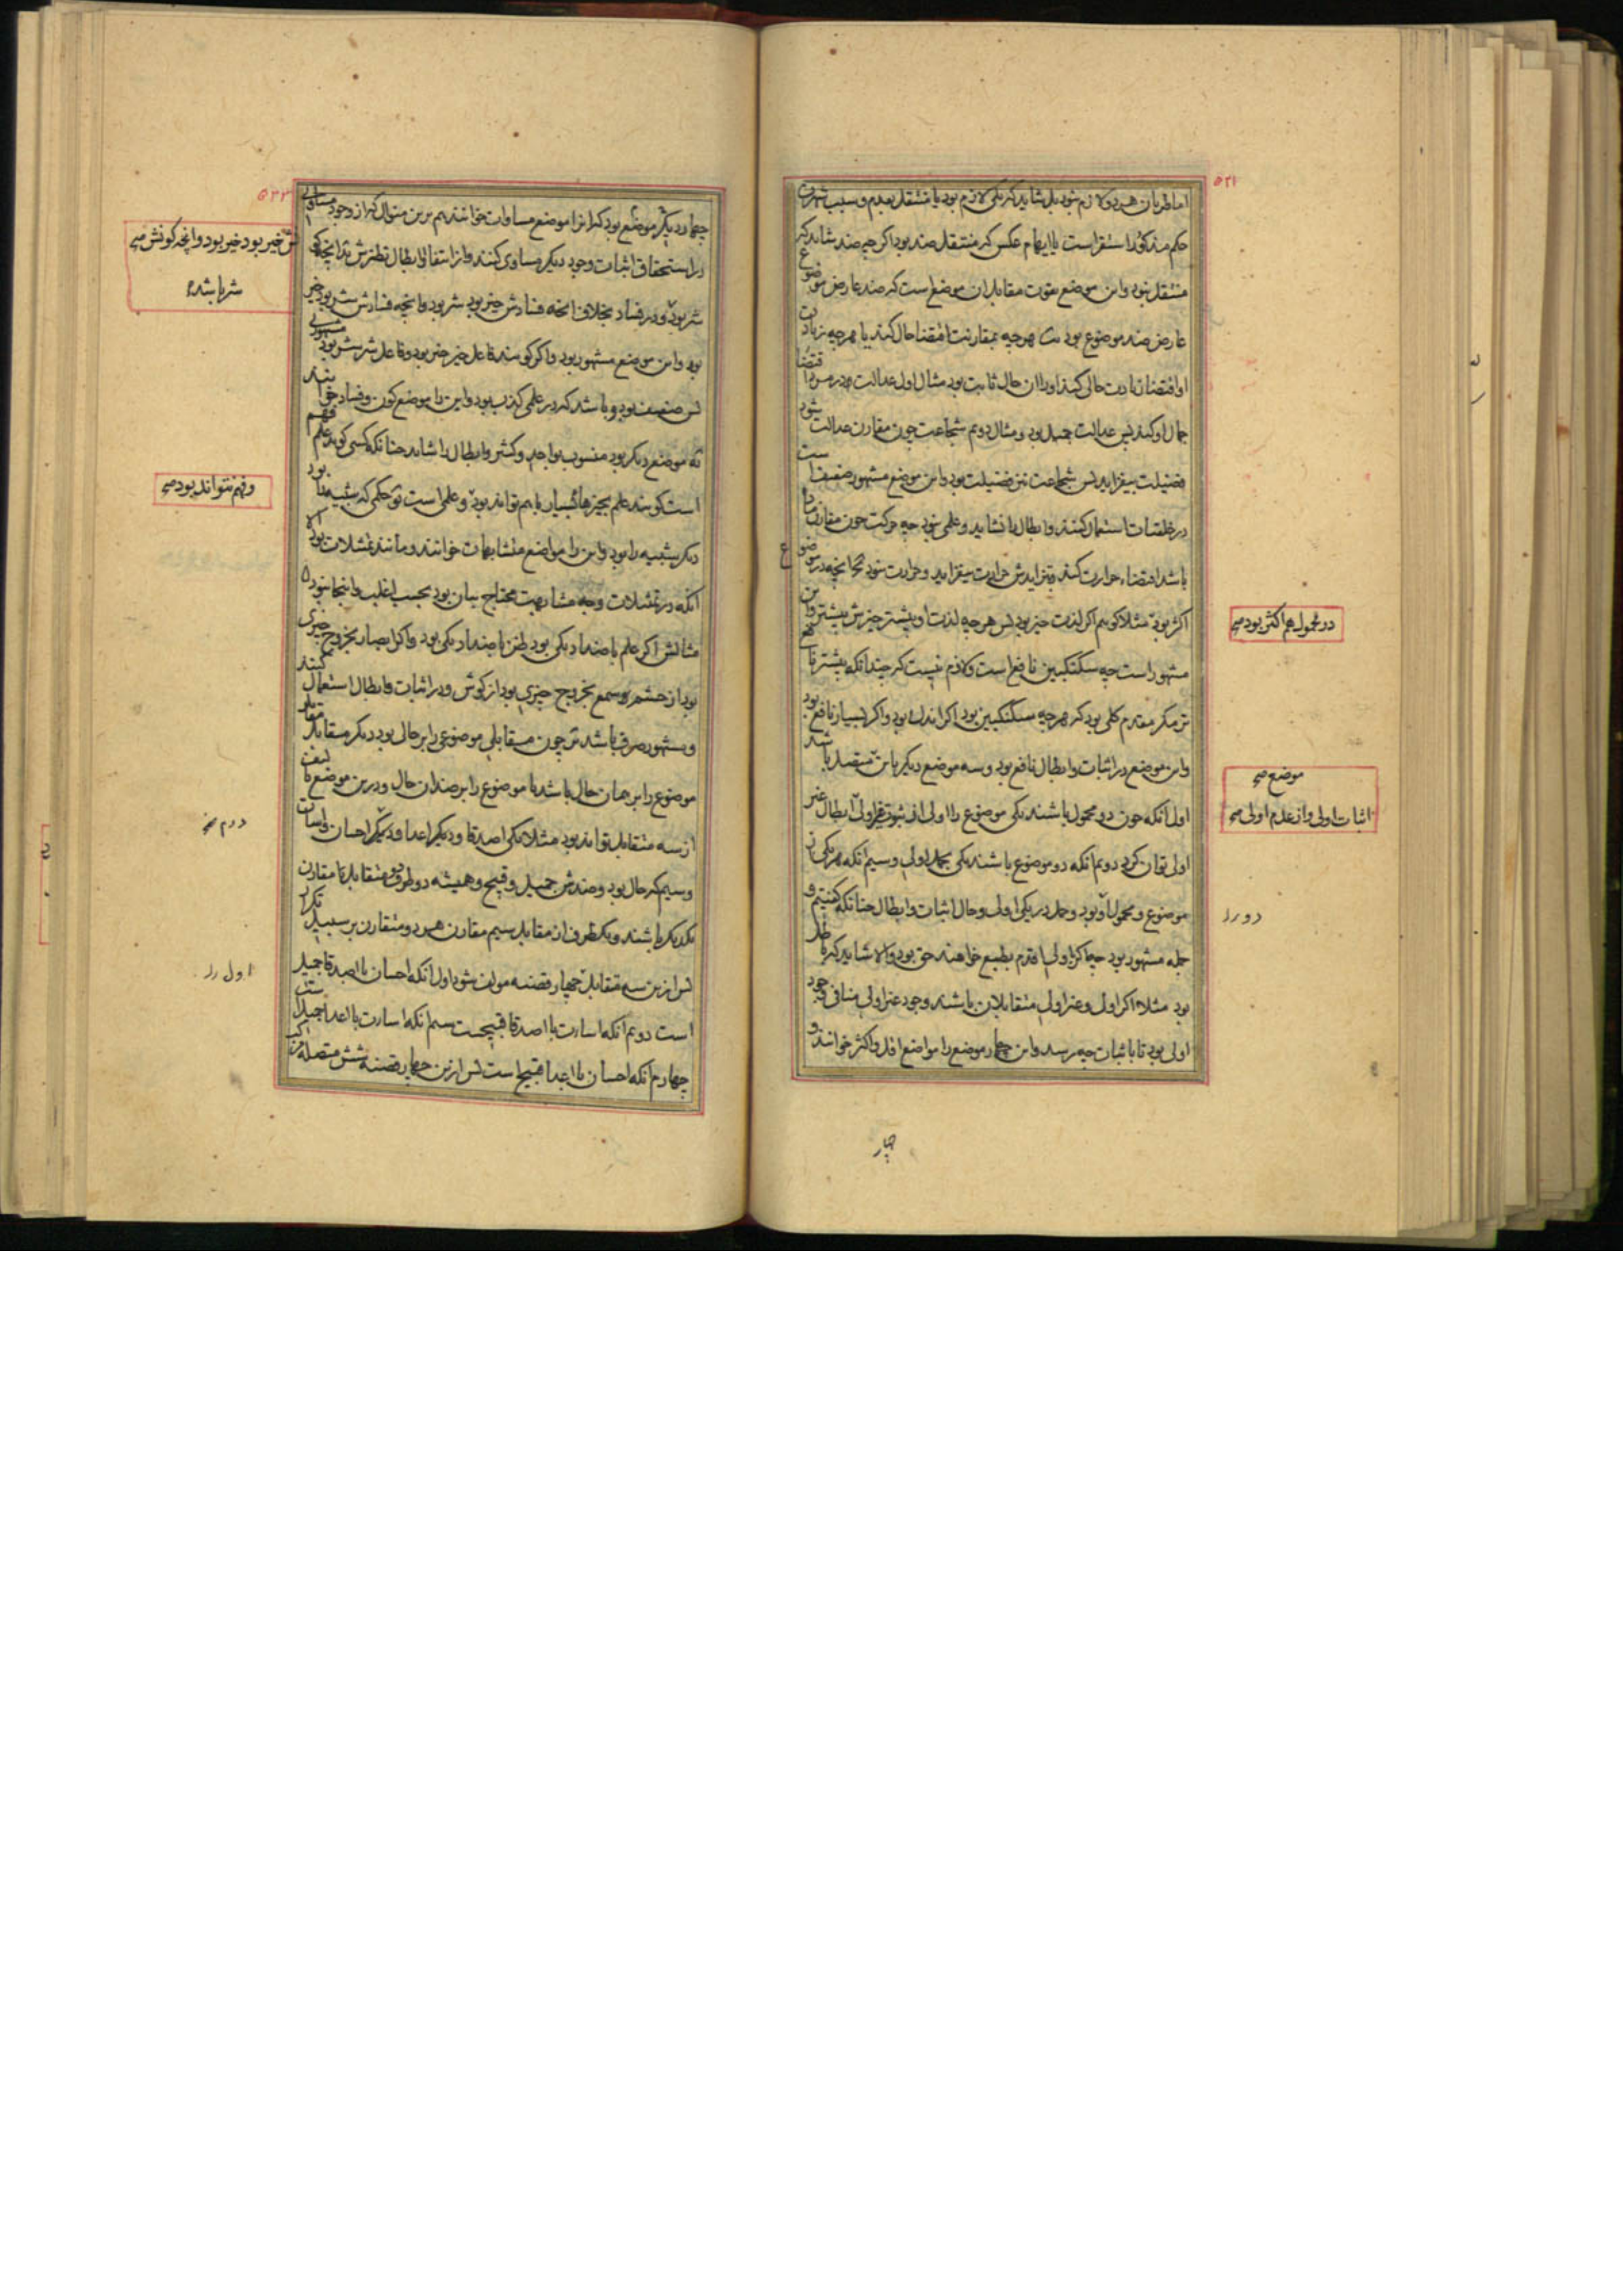 ۵۲۱
اما طریان هر دو لازم نبود بل شاید که یکی لازم بود یا منتقل بعدم و سبب شهرت
حکم مذکور استقراست یا ایهام عکس که منتقل ضد بود اگر چه ضد شاید که
منتقل نبود و این موضع بقوت مقابل آن موضع است که ضد عارض موضوع
عارض ضد موضوع بود هرچه بمقارنت اقتضا حال کند یا هرچه زیادت
او اقتضا زیادت حالی کند او را آن حال ثابت بود مثال اول عدالت در مردم اقتضا
جمال او کند پس عدالت جمیل بود و مثال دوم شجاعت چون مقارن عدالت شود
فضیلت بیفزاید پس شجاعت نیز فضیلت بود و این موضع مشهور ضعیف است
در خلقیات استعمال کنند و ابطال را نشاید و علمی نبود چه حرکت چون مقارن ما
باشد اقتضاء حرارت کند و بتزایدش حرارت بیفزاید و حرارت نبود آنچه در موضوع
اکثر بود مثلا گویم اگر لذت خیر بود پس هر چه لذت او بیشتر خیرش بیشتر و این
مشهور است چه سکنگبین نافع است و لازم نیست که چندانکه بیشتر نافع
تر مگر مقدم کلی بود که هرچه سکنگبین بود اگر اندک بود و اگر بسیار نافع بود
و این موضع در اثبات و ابطال نافع بود و سه موضع دیگر باین متصل باشد
اول آنکه چون دو محمول باشند یکی موضوع را اولی از ثبوت غیر اولی ابطال غیر
اولی توان کرد دوم آنکه دو موضوع باشند یکی بحمل اولی و سیم آنکه هر یکی از
موضوع و محمول دو بود و حمل در یکی اولی و حال اثبات و ابطال چنانکه گفتیم و
جمله مشهور بود چه اگر اولی اقدم بطبع خواهند حق بود و الا شاید که باطل
بود مثلا اگر اول و غیر اولی متقابلان باشند وجود غیر اولی منافی وجود
اولی بود تا باثبات چه رسد و این چهار موضع را مواضع اقل و اکثر خوانند و
در محمول هم اکثر بود صح
موضع صح
اثبات اولی و از عدم اولی صح
چهار
۵۲۲
چهار دیگر موضع بود که آنرا موضع مساوات خوانند هم برین منوال که از وجود مساوی
در استحقاق اثبات وجود دیگر مساوی کنند و از انتفا او ابطال نظیرش
شر بود و در فساد بخلاف آنچه فسادش خیر بود شر بود و آنچه فسادش شر بود خیر
بود و این موضع مشهور بود و اگر گویند فاعل خیر خیر بود و فاعل شر شر بود
پس ضعیف بود و باشد که در علمی کذب بود و این را موضع کون و فساد خوانند
موضع دیگر بود منسوب بواحد و کثیر و ابطال را شاید چنانکه کسی گوید علم فهم
است گویند علم بچیزها بسیار باهم تواند بود و علمی است حکمی که شبیه را بود
دیگر شبیه را بود و این را مواضع متشابهات خوانند و مانند تمثیلات بود الا
آنکه در تمثیلات وجه مشابهت محتاج بیان بود بحسب اغلب و اینجا نبود
مثالش اگر علم باضداد یکی بود ظن باضداد یکی بود و اگر ابصار بخروج چیزی
بود از چشم سمع بخروج چیزی بود از گوش و در اثبات و ابطال استعمال کنند
و مشهور صرف باشد چون متقابلی موضوعی را بر حال بود دیگر متقابل
موضوع را بر همان حال باشد یا موضوع را بر ضد آن حال و درین موضع تالیف
از سه متقابل تواند بود مثلا یکی اصدقا و دیگر اعدا و دیگر احسان و اسائت
و سیم که حال بود و ضدش جمیل و قبیح و همیشه دو طرف دو متقابل با مقارن
یکدیگر باشند و یکطرف از مقابل سیم مقارن هر دو متقارن بر سبیل تکرار
پس ازین سه متقابل چهار قضیه مولف شود اول آنکه احسان با اصدقا جمیل
است دوم آنکه اسارت با اصدقا قبیحست سیم آنکه اسارت با اعدا جمیل است
چهارم آنکه احسان با اعدا قبیح است پس ازین چهار قضیه شش متصله مرکب
خیر بود خیر بود و آنچه کونش صح
شر باشد
و فهم نتواند بود صح